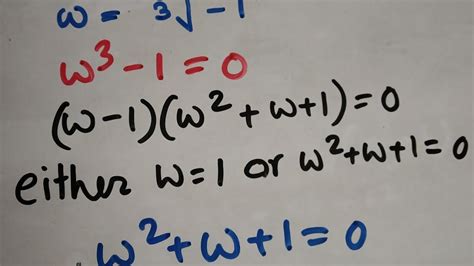 ω = ³√-1
ω³-1=0
(ω-1)(ω²+ω+1)=0
either ω=1 or ω²+ω+1=0
ω²+ω+1=0